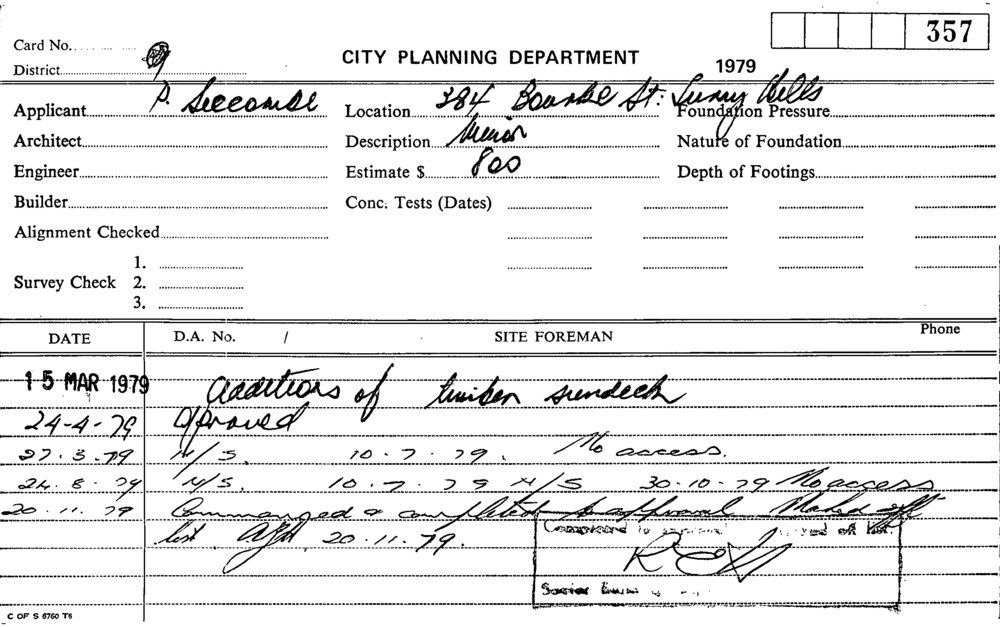 357
Card No.
CITY PLANNING DEPARTMENT
District 9
1979
Applicant P. Seccombe Location 384 Bourke St: Surry Hills Foundation Pressure
Architect Description Minor Nature of Foundation
Engineer Estimate $ 800 Depth of Footings
Builder Conc. Tests (Dates)
Alignment Checked
1.
Survey Check 2.
3.
DATE D.A. No. / SITE FOREMAN Phone
15 MAR 1979 additions of timber sundeck
24-4-79 approved
27.3.79 N/S. 10-7-79. No access.
24.8.79 N/S. 10-7-79 N/S 30-10-79 No access
20.11.79 Commenced & completed to approval Marked off
list. 20-11-79.
Completed to off list.
Senior
C OF S 6760 T6